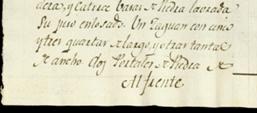 deras, y Catorce Varas de Piedra labrada
Su piso enlosado. Un Zaguan con cinco
y tres quartas de largo, y otras tantas
de ancho dos Portales de Piedra de
Al frente